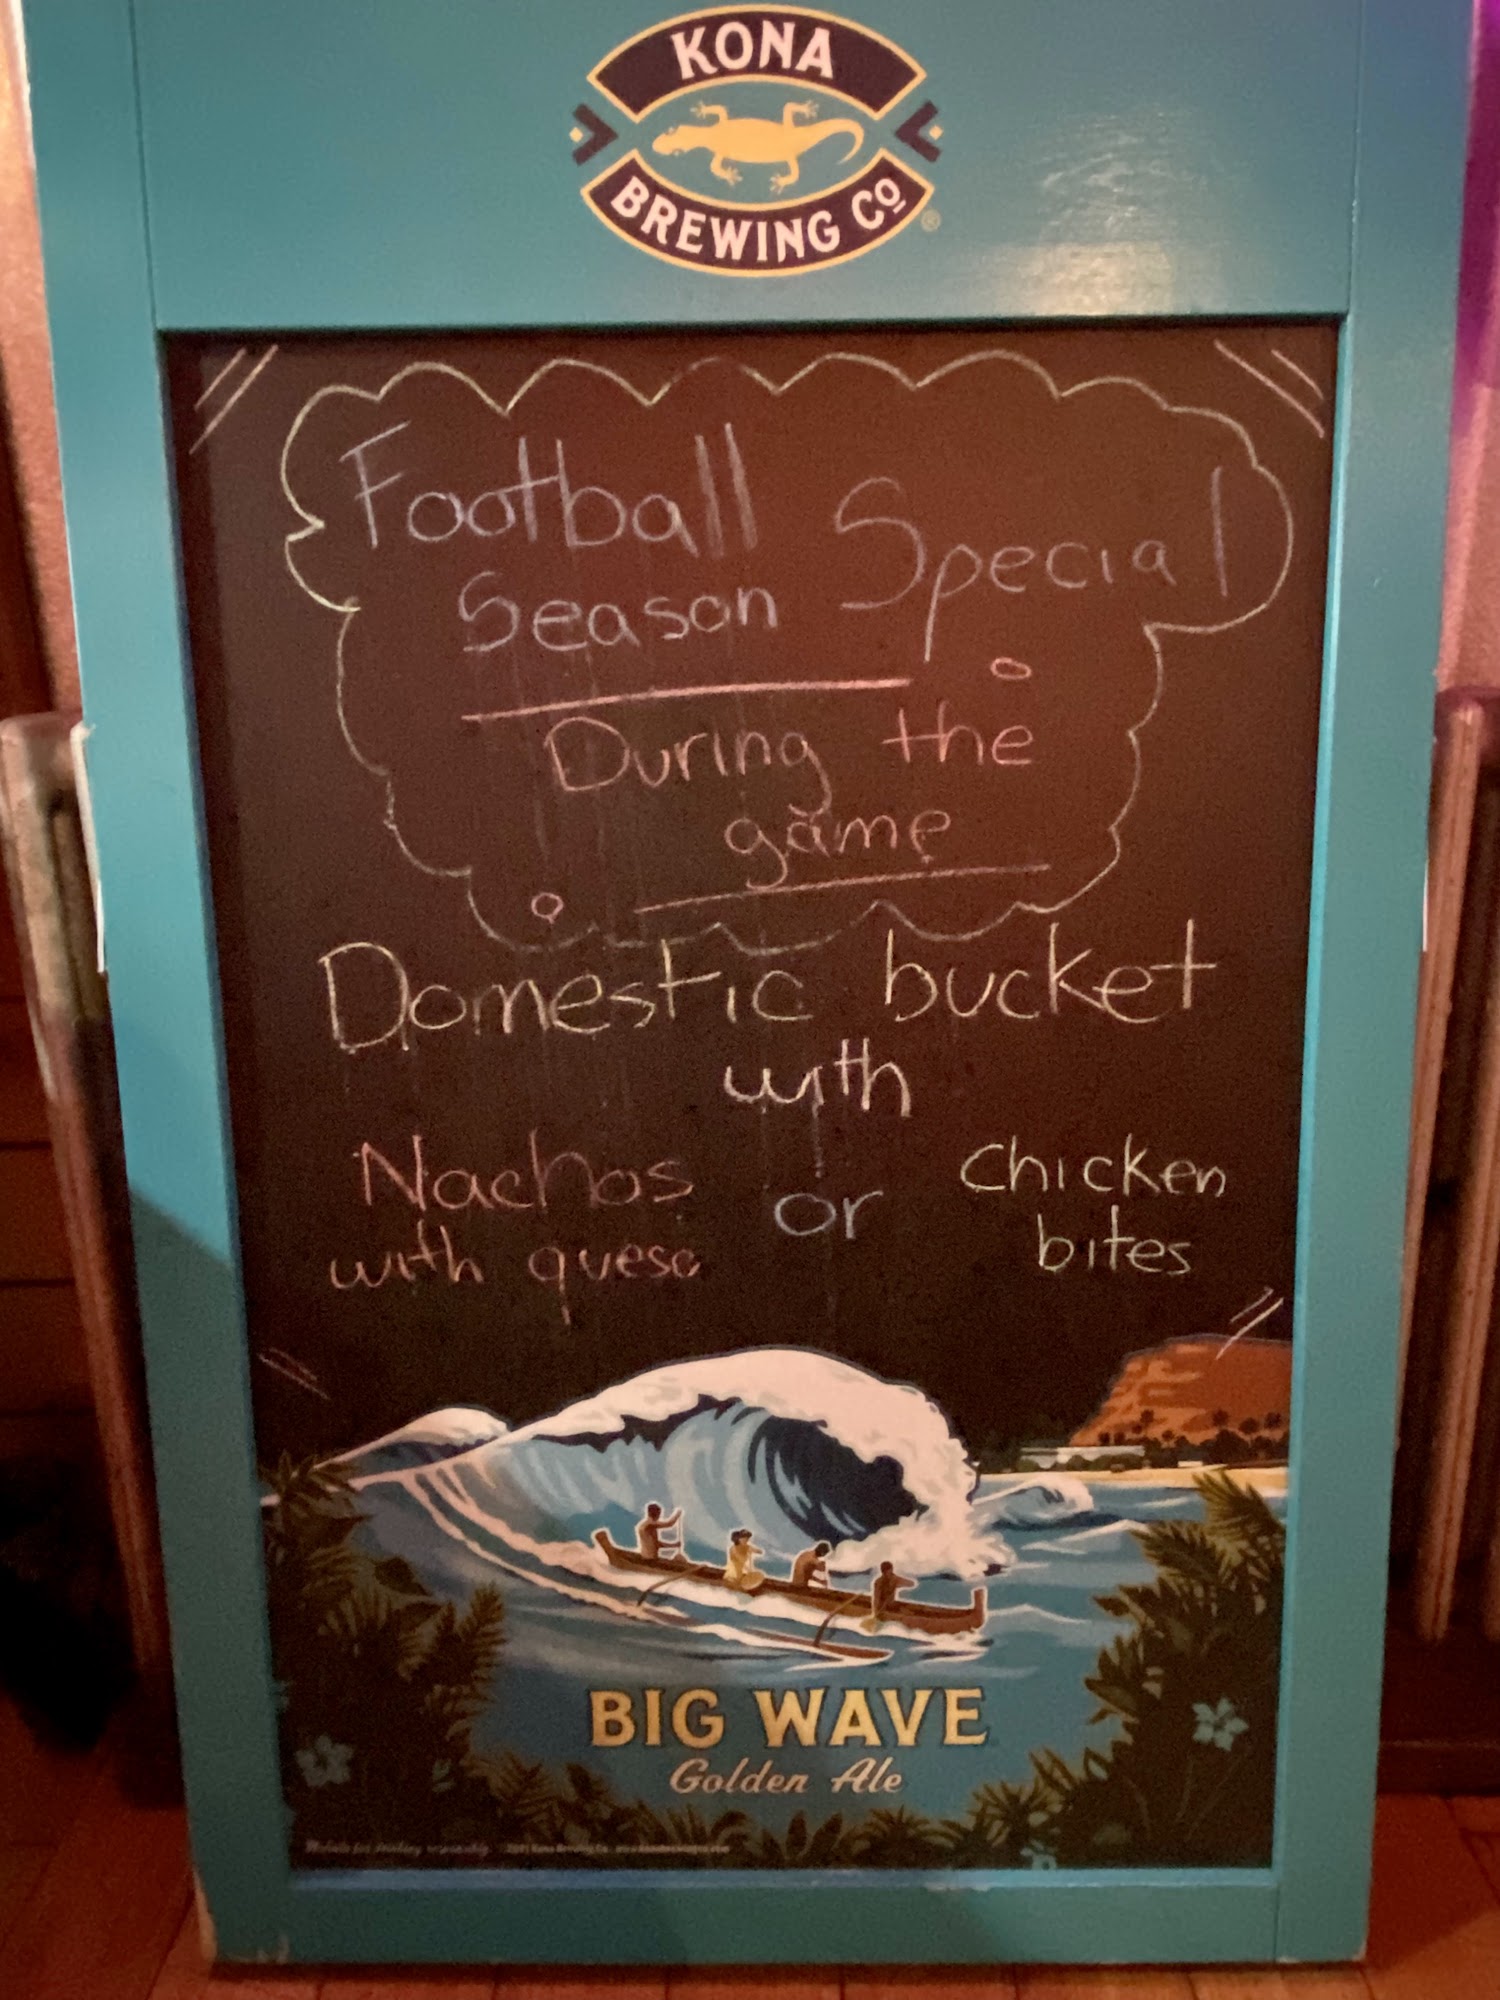 KONA
BREWING Co
Football
Season Special
During the
game
Domestic bucket
with
Nachos or Chicken
with queso bites
BIG WAVE
Golden Ale